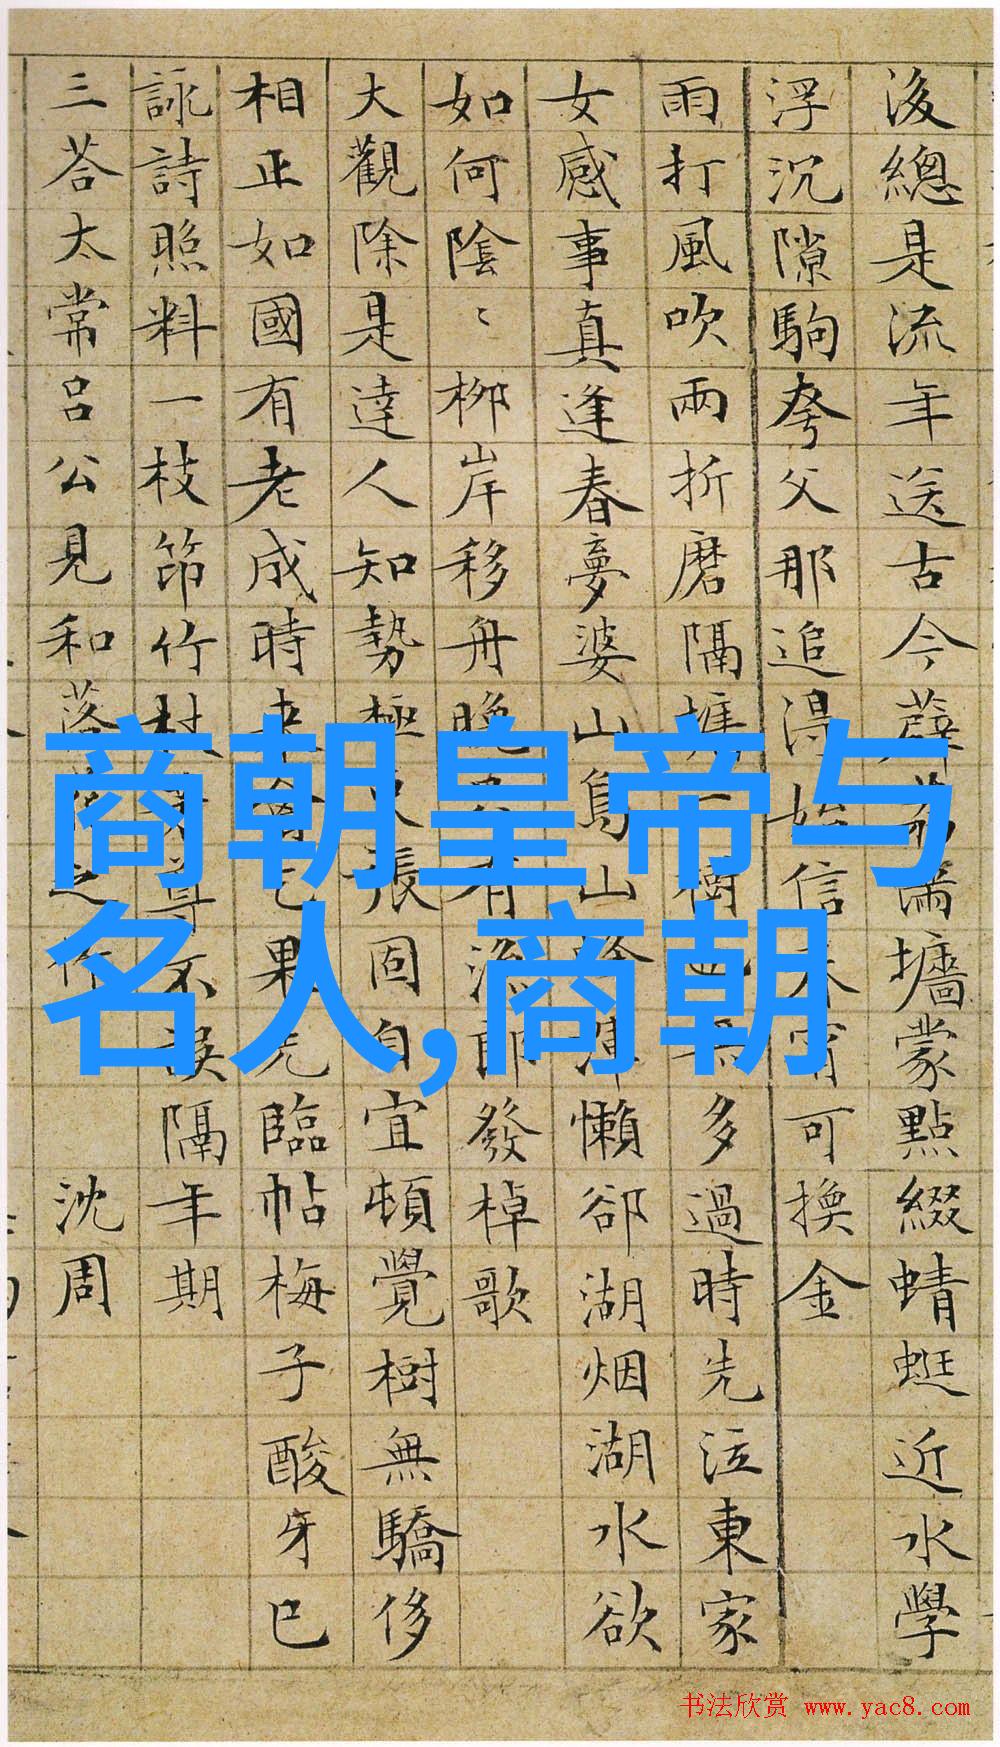 後總是流年送古今薜滿墻蒙點綴蜻蜓近水學
浮沉隙駒夸父那追得始信未可換金
雨打風吹兩折磨隔墻一樹無多過時先泣東家
女感事真逢春夢婆山鳥山渾懶卻湖烟湖水欲
如何陰〻柳岸移舟晚有漁郎發棹歌
大觀除是達人知勢極張固自宜頓覺樹無驕侈
相正如國有老成時來果先臨帖梅子酸牙已
詠詩照料一枝筇竹杖不誤隔年期
三荅太常呂公見和落花之作 沈周
商朝皇帝与
名人,商朝
书法欣赏 www.yac8.com